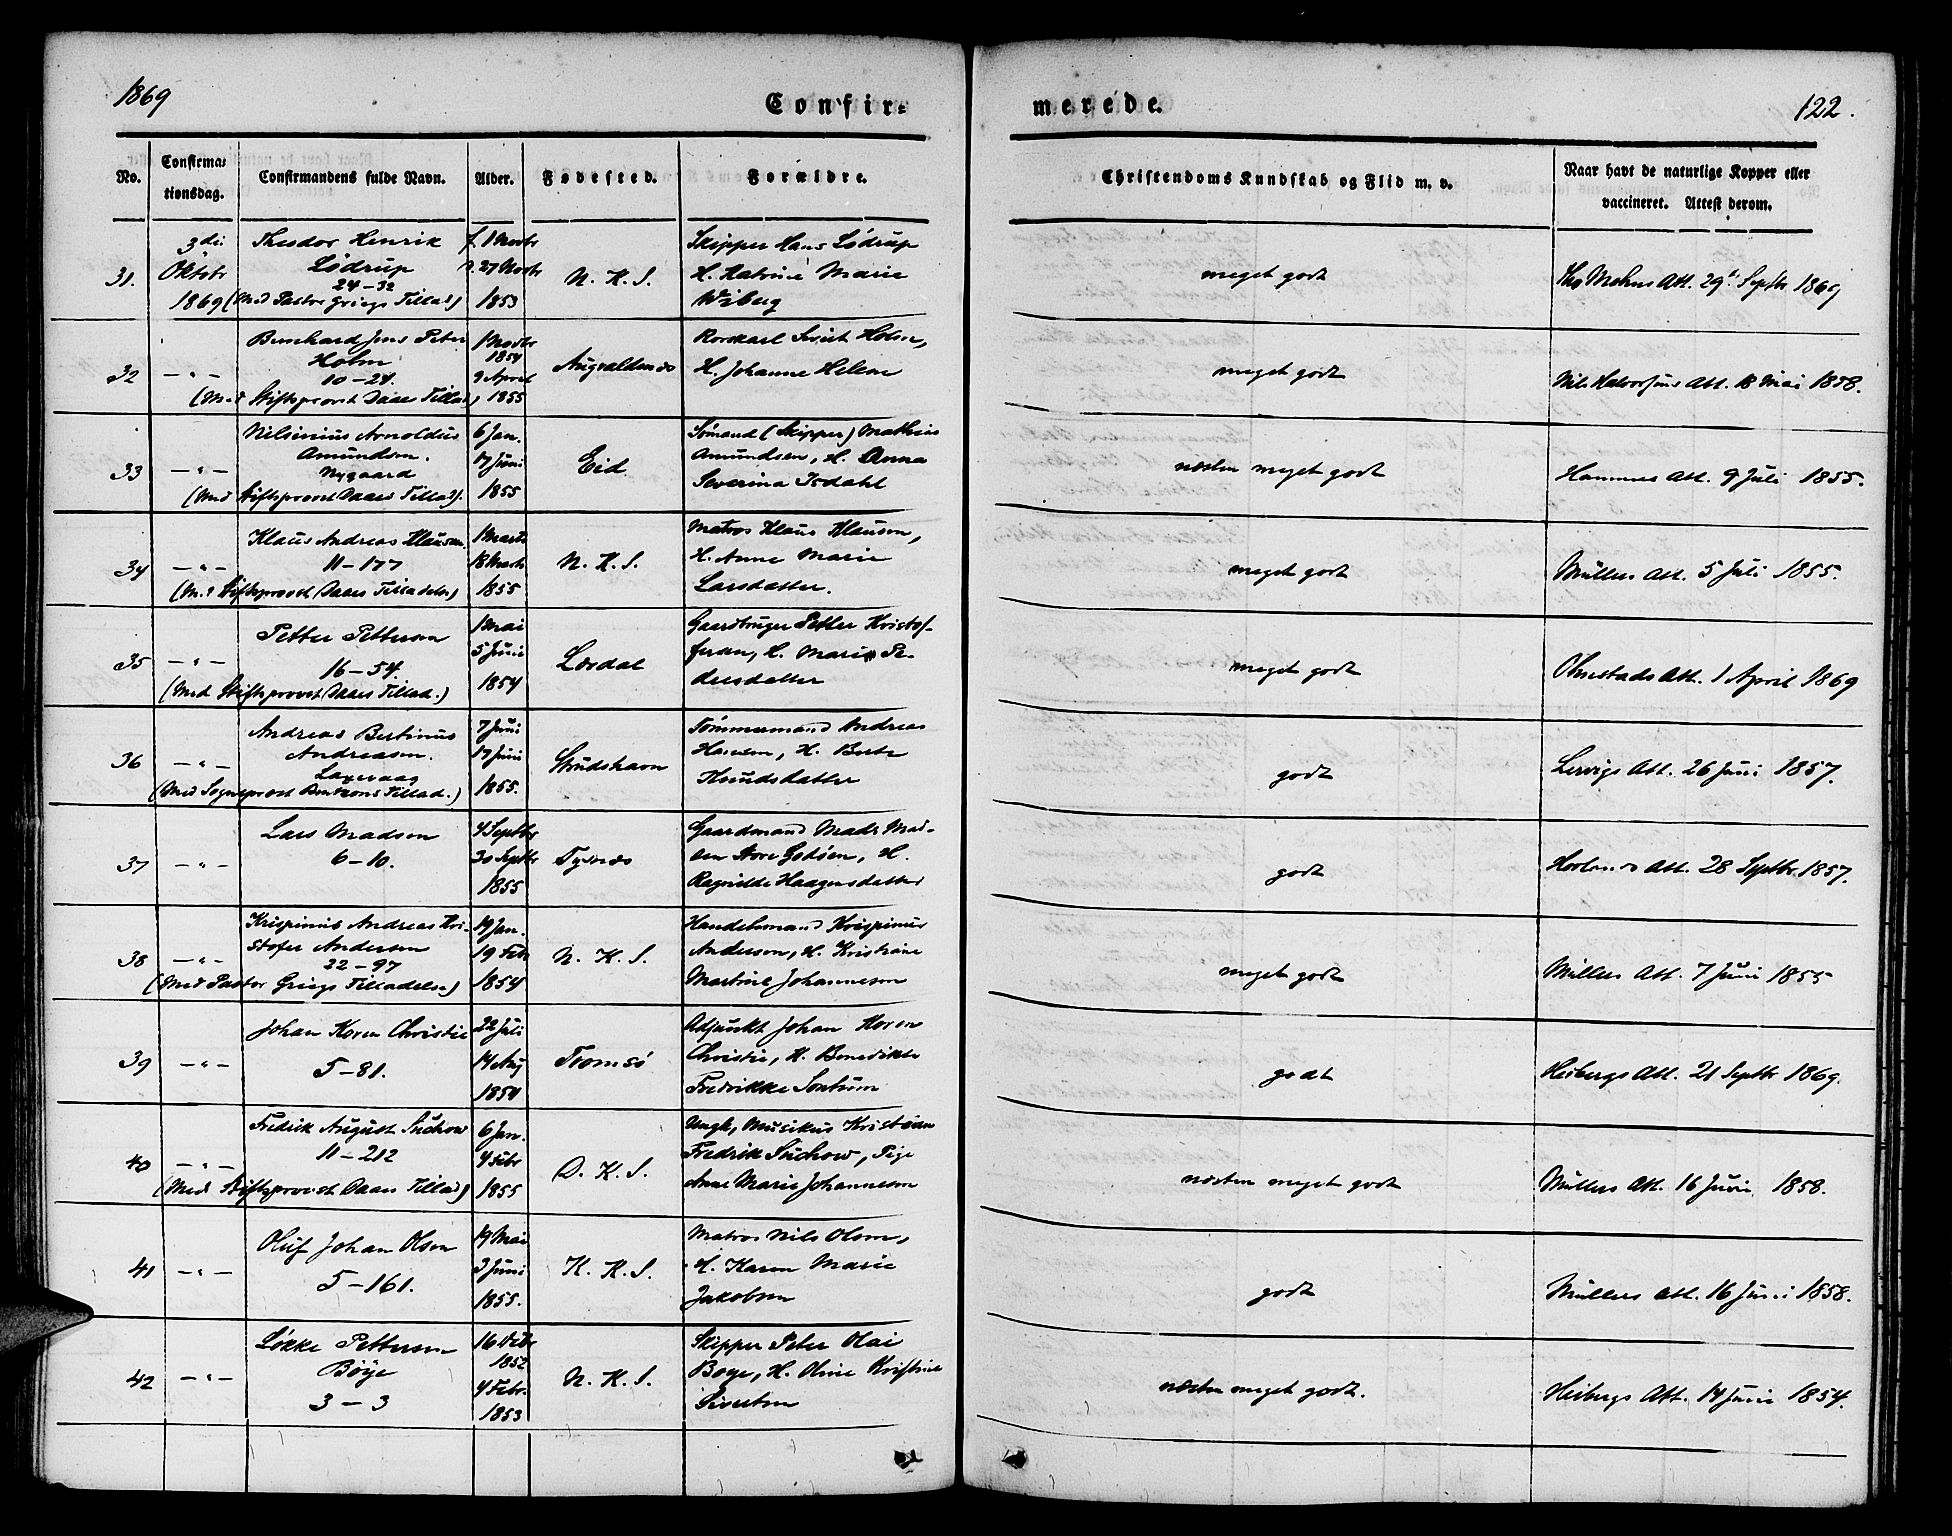 1869
Confir-
merede.
122.
No.
Confirma-
tionsdag.
Confirmandens fulde Navn.
Alder.
Fødested.
Forældre.
Christendoms Kundskab og Flid m. v.
Naar havt de naturlige Kopper eller
vaccineret. Attest derom.
31.
3die
Oktbr
1869
Theodor Henrik
Lødrup
24-32
(Med Pastor Griegs Tillad)
f. 1 Novbr
27 Novbr
1853
N. K. S.
Skipper Hans Lødrup
H. Katrine Marie
Wiberg
meget godt
Att. 29 Septbr 1869
32
- " -
Bernhard Jens Peter
Holm
10-24.
(Med Stiftsprovst Daaes Tillad.)
1 Novbr
1854
9 April
1855
Augvaldsnæs
Holm,
H. Johanne Helene
meget godt
Nils Halvorsens Att. 18 Mai 1858.
33
- " -
Nilsinius Arnoldus
Amundsen.
Nygaard
(Med Stiftsprovst Daaes Tillad).
6 Jan.
17 Juni
1855
Eid
Sømand (Skipper) Mathias
Amundsen, H. Anna
Severina Isdahl
næsten meget godt
Hammers Att. 9 Juli 1855.
34
- " -
Klaus Andreas Klausen.
11-177
(Med Stiftsprovst Daaes Tilladelse)
1 Marts
18 Marts
1855
N. K. S.
Matros Klaus Klausen,
H. Anne Marie
Larsdatter.
meget godt
Müllers Att. 5 Juli 1855.
35
- " -
Petter Pettersen
16-54.
(Med Stiftsprovst Daaes Tillad.)
1 Mai
5 Juni
1854
Lærdal
Gaardbruger Petter Kristof-
fersen, H. Marie Pe-
dersdatter
meget godt
Ohnstads Att. 1 April 1869
36
- " -
Andreas Bertinus
Andreasen.
Laxevaag
(Med Sogneprovst Berntzens Tillad.)
7 Juni
17 Juni
1855.
Strudshavn
Tømmermand Andreas
Hansen, H. Berte
Knudsdatter
godt
Lervigs Att. 26 Juni 1857.
37
- " -
Lars Madsen
6-10.
4 Septbr
30 Septbr
1855
Tysnæs
Gaardmand Mads Mad-
sen Store Godøen, H.
Ragnilde Haagensdatter
godt
Att. 28 Septbr 1857.
38
- " -
Krispinus Andreas Kri-
stofer Andersen
22-97
(Med Pastor Griegs Tilladelse)
19 Jan.
19 Febr
1854
N. K. S.
Handelsmand Krispinus
Andersen, H. Kristiane
Martine Johannesen
meget godt
Müllers Att. 7 Juni 1855
39
- " -
Johan Koren Christie
5-81.
22 Juli
14 Aug
1854
Tromsø
Adjunkt Johan Koren
Christie, H. Benedikte
Fredrikke Sontum
godt
Heibergs Att. 21 Septbr 1869.
40
- " -
Fredrik August Suchow
11-212
(Med Stiftsprovst Daaes Tillad)
6 Jan.
4 Febr
1855
D. K. S.
Ungk, Musikus Kristian
Fredrik Suchow, Pige
Anne Marie Johannesen
næsten meget godt
Müllers Att. 16 Juni 1858.
41
- " -
Oluf Johan Olsen
5-161.
19 Mai
3 Juni
1855.
K. K. S.
Matros Nils Olsen,
H. Karen Marie
Jakobsen
godt
Müllers Att. 16 Juni 1858.
42
- " -
Løkke Pettersen
Böye
3-3
1852
4 Febr.
1853
N. K. S.
Skipper Peter Olai
Boye, H. Oline Kristine
Sivertsen
næsten meget godt.
Heibergs Att. 14 Juni 1854.